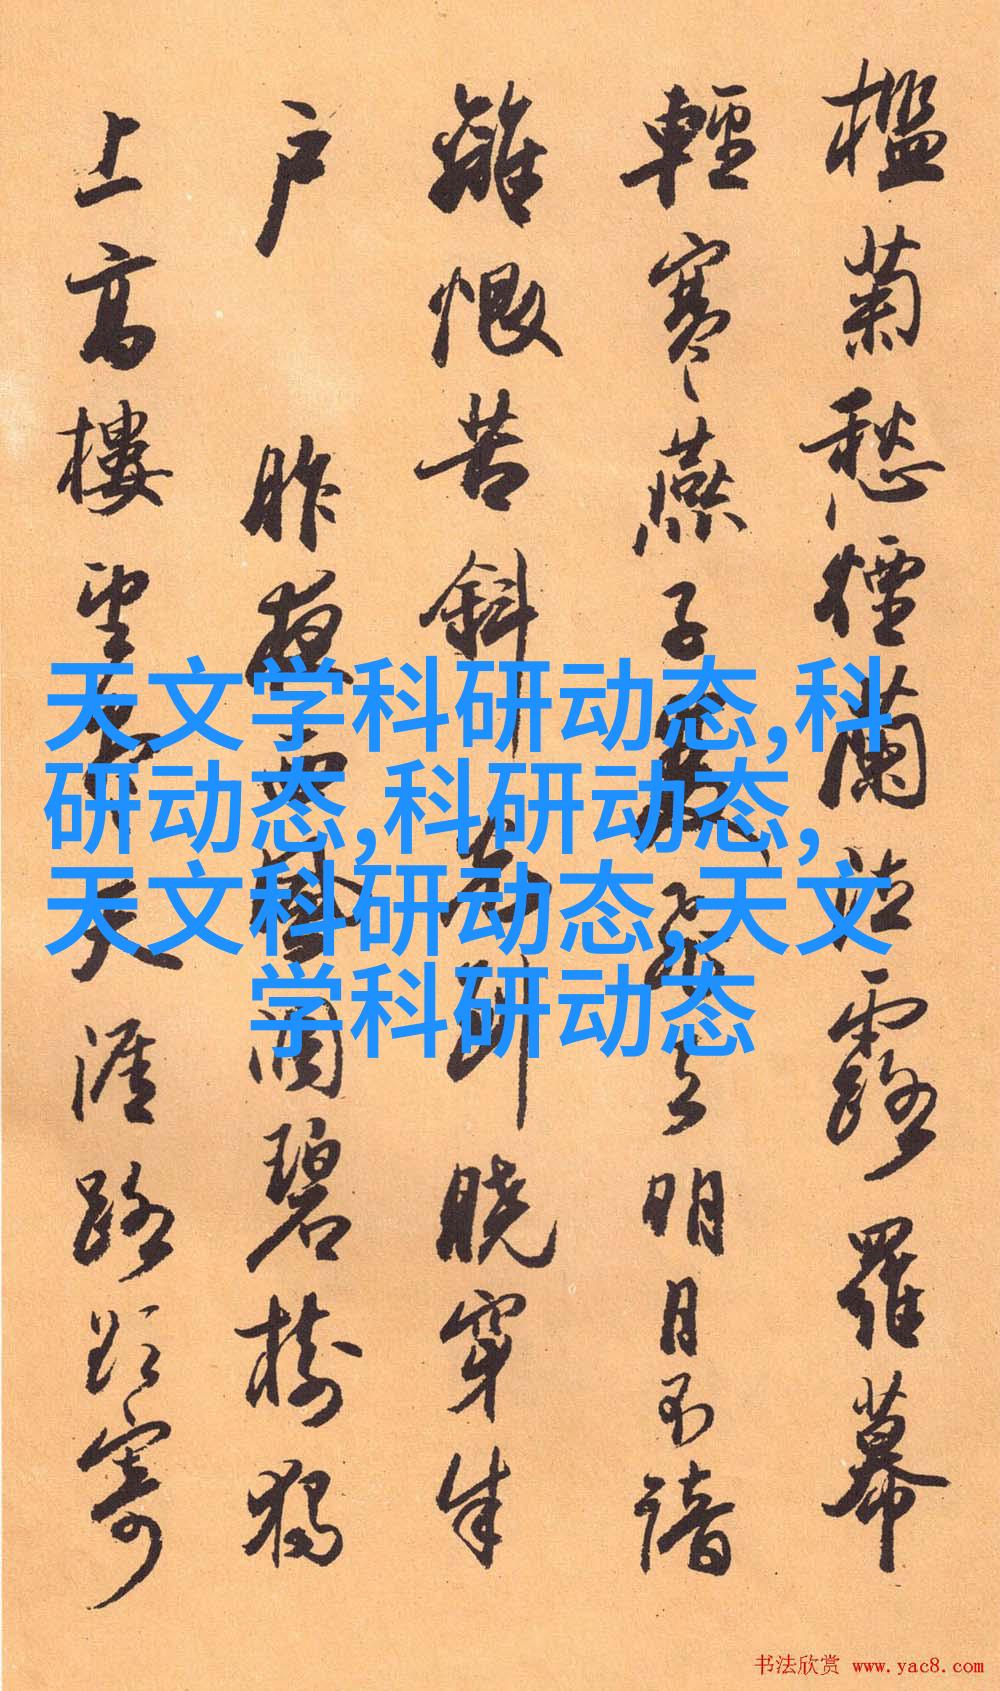 檻菊愁煙蘭泣露羅幕
輕寒燕子雙飛去明月不諳
離恨苦斜光到曉穿朱
户 昨夜西風凋碧樹獨
上高樓望盡天涯路欲寄
天文学科研动态,科
研动态,科研动态,
天文科研动态,天文
学科研动态
书法欣赏 www.yac8.com